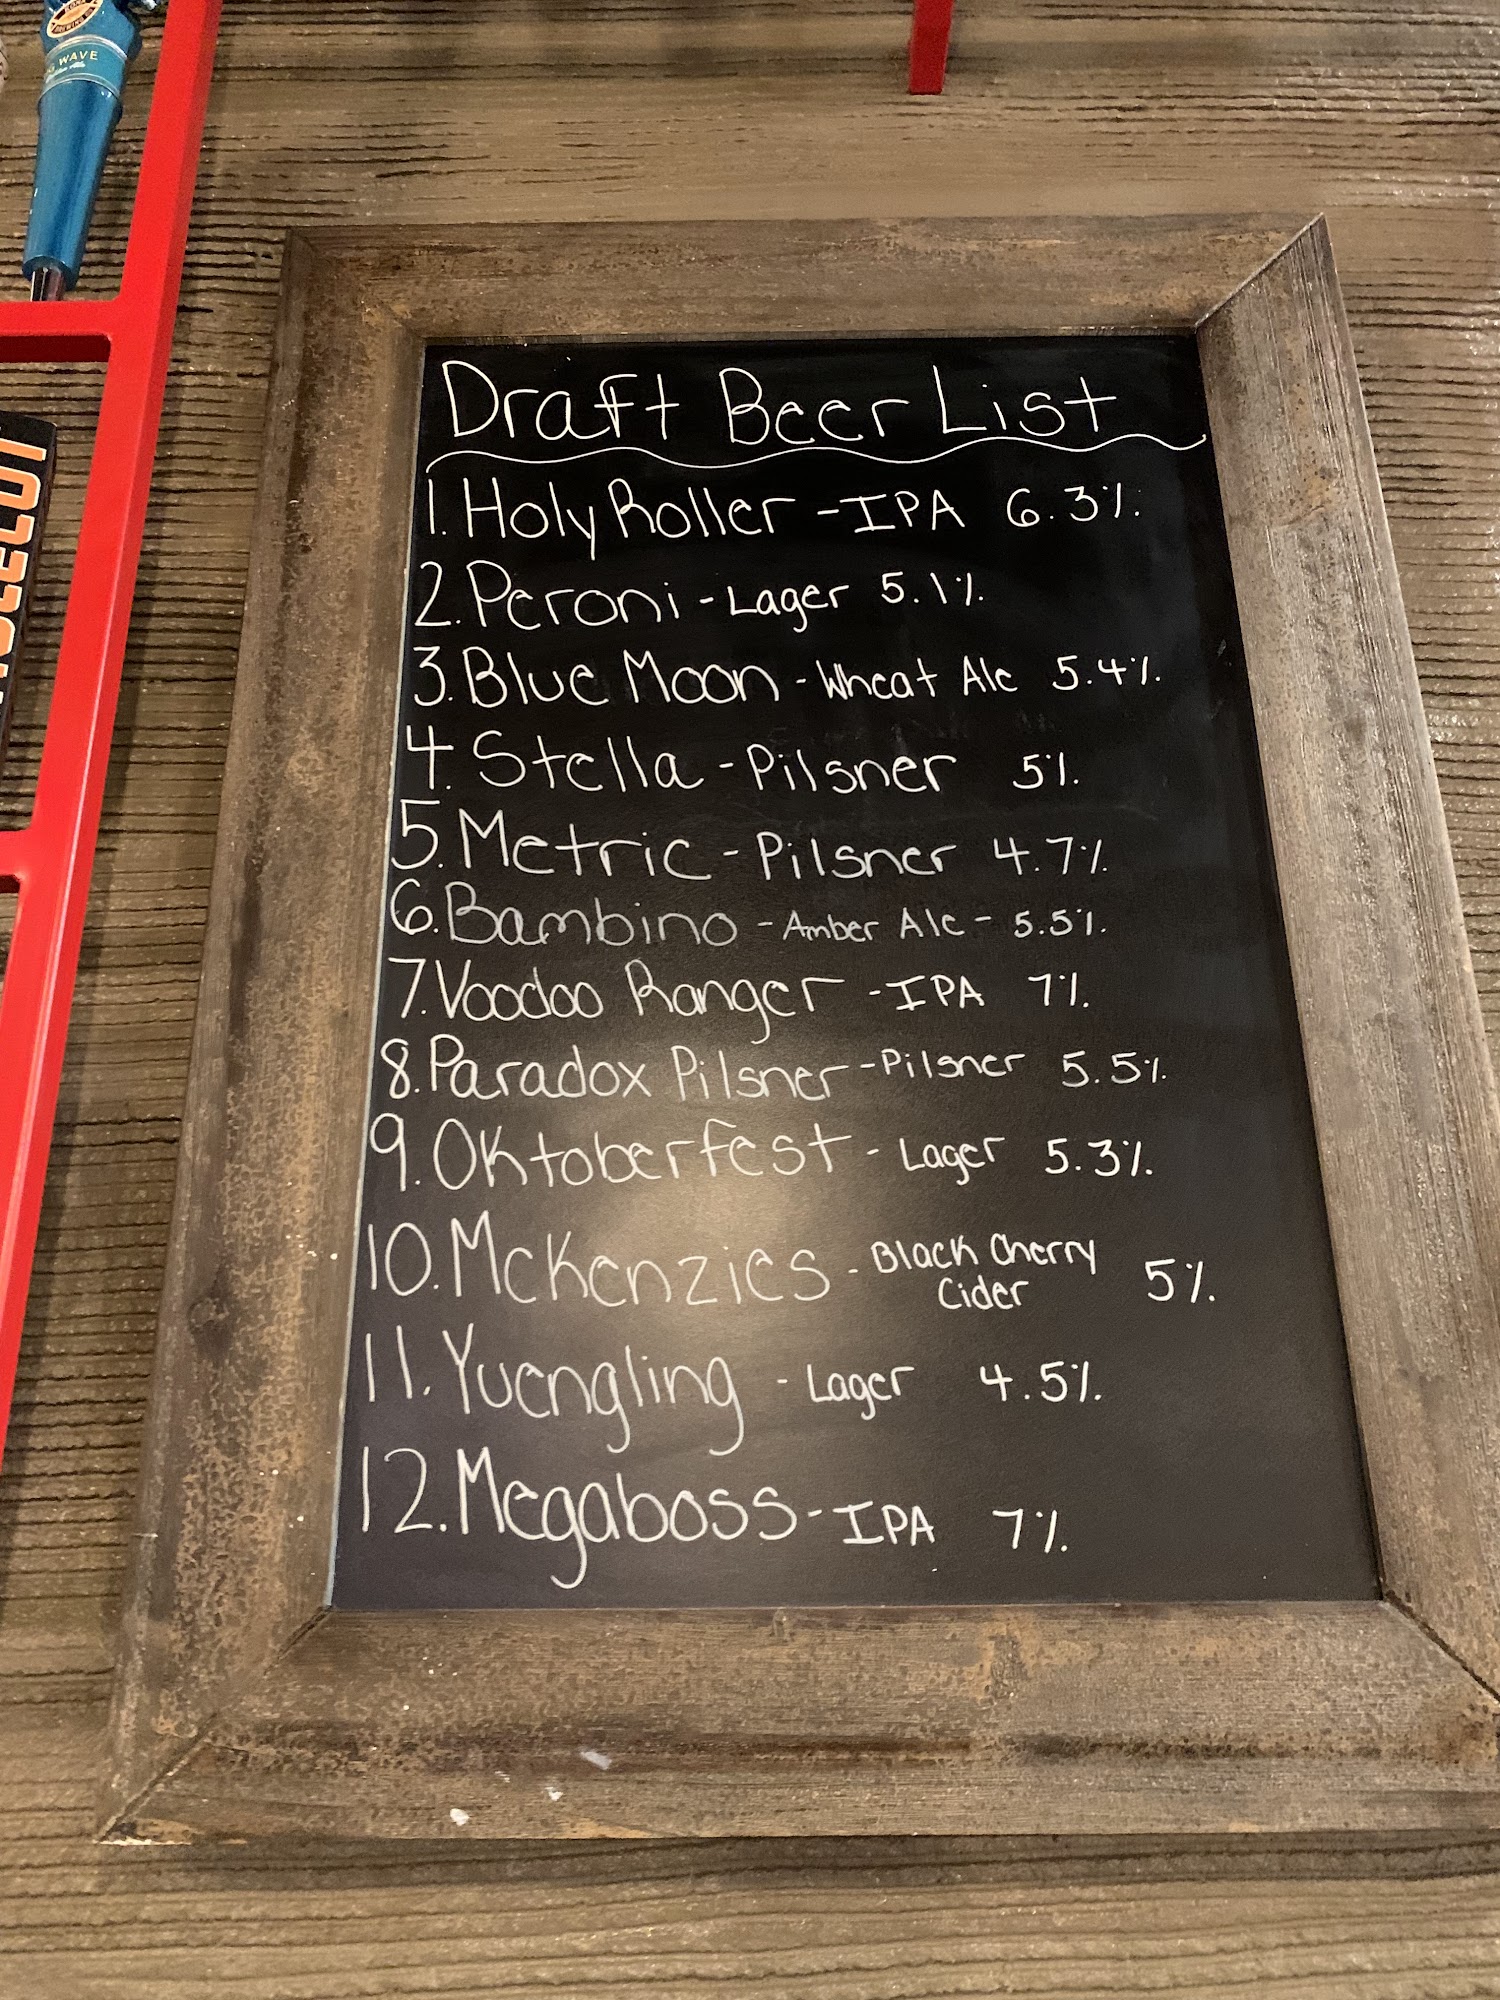 WAVE
Draft Beer List
1. Holy Roller - IPA 6.3%
2. Peroni - Lager 5.1%
3. Blue Moon - Wheat Ale 5.4%
4. Stella - Pilsner 5%
5. Metric - Pilsner 4.7%
6. Bambino - Amber Ale - 5.5%
7. Voodoo Ranger - IPA 7%
8. Paradox Pilsner - Pilsner 5.5%
9. Oktoberfest - Lager 5.3%
10. McKenzies - Black Cherry
Cider 5%
11. Yuengling - Lager 4.5%
12. Megaboss - IPA 7%